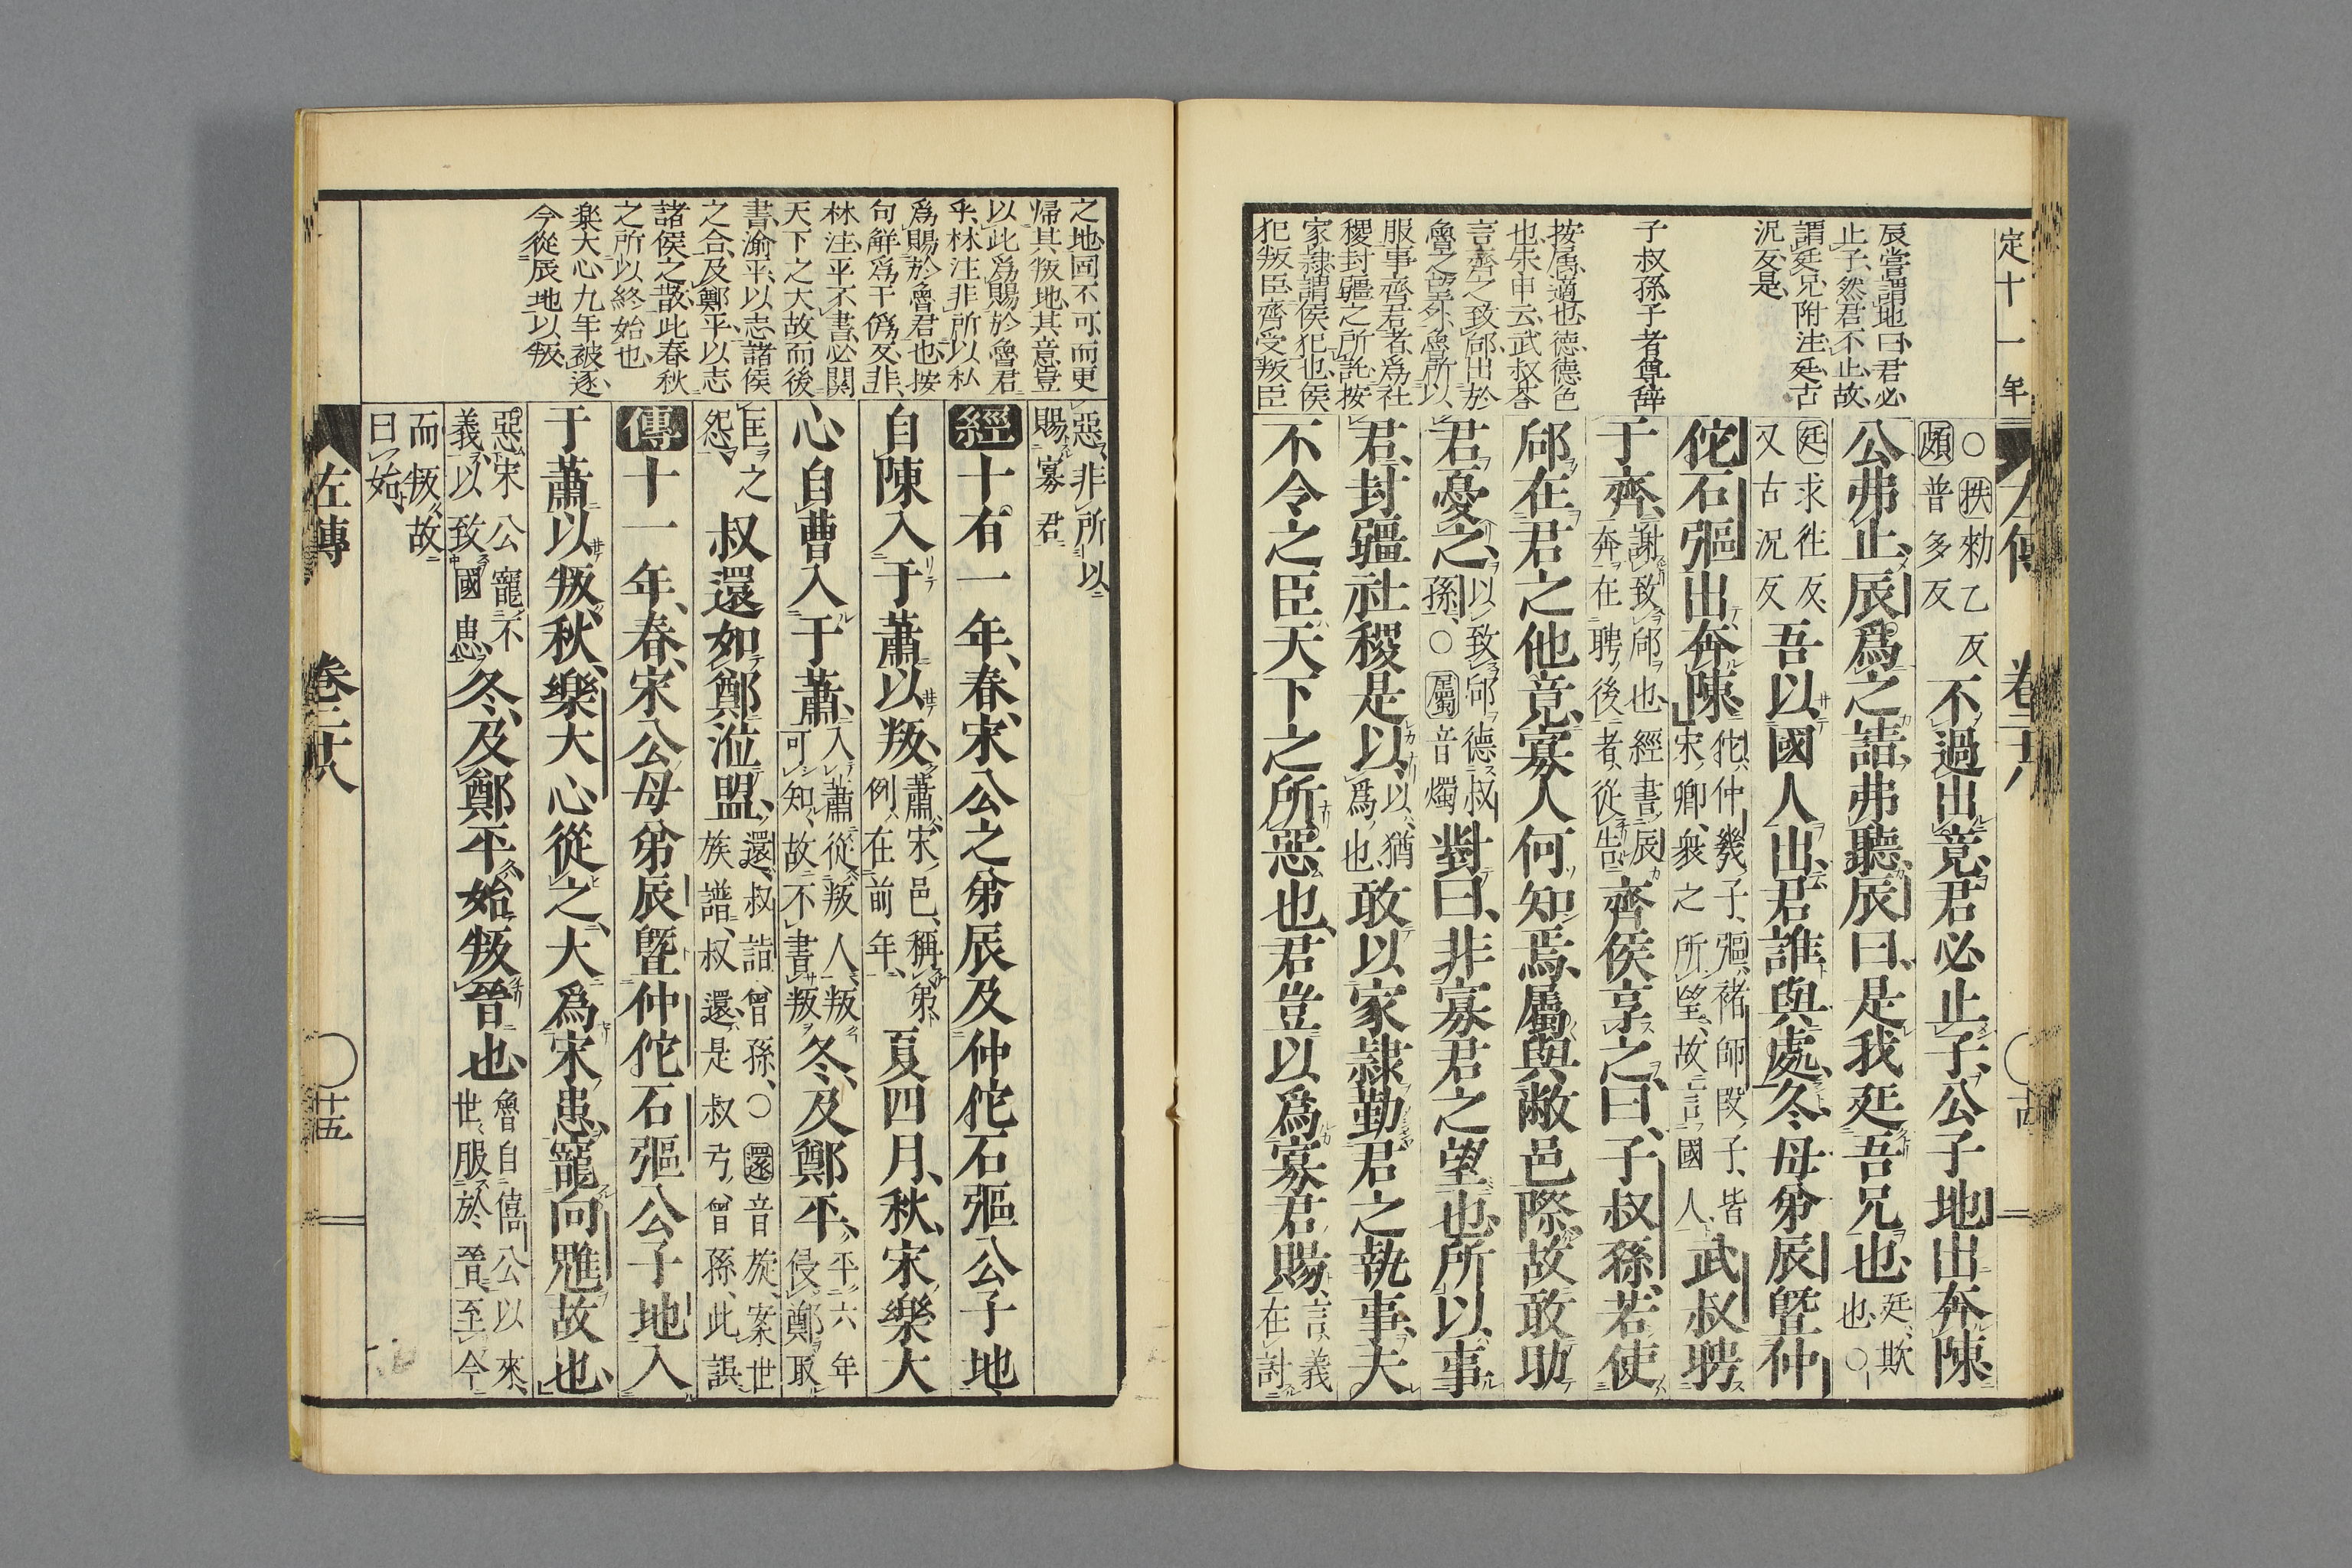 定十一年
辰嘗謂地曰君必
止子然君不止故
謂廷兄附注廷古
況反是
子叔孫子者尊辞
按属適也德德色
也朱申云武叔荅
言齊之致郈出於
魯之望外魯所以
服事齊君者為社
稷封疆之所訛按
家隷謂侯犯也侯
犯叛臣齊受叛臣
左傳 卷二十八 十四
○抶勑乙反頗普多反不過出竟君必止子公子地出奔陳
公弗止辰爲之請弗聽辰曰是我廷吾兄也廷欺也○
廷求徃反又古況反吾以國人出君誰與處冬母弟辰曁仲
佗石彄出奔陳佗仲幾子彄褚師段子皆宋卿衆之所望故言國人武叔聘
于齊謝致郈也經書辰奔在聘後者從告齊侯享之曰子叔孫若使
郈在君之他竟寡人何知焉屬與敝邑際故敢助
君憂之以致郈德叔孫○屬音燭對曰非寡君之望也所以事
君封疆社稷是以以猶爲也敢以家隷勤君之執事夫
不令之臣天下之所惡也君豈以爲寡君賜言義在討
之地固不可而更
帰其叛地其意豈
以此爲賜於魯君
乎林注非所以私
爲賜於魯君也按
句解爲干僞反非
林注平不書必関
天下之大故而後
書渝平以志諸侯
之合及鄭平以志
諸侯之散此春秋
之所以終始也
楽大心九年被逐
今從辰地以叛
惡非所以賜寡君
經十有一年春宋公之弟辰及仲佗石彄公子地
自陳入于蕭以叛蕭宋邑稱弟例在前年夏四月秋宋樂大
心自曹入于蕭入蕭從叛人叛可知故不書叛冬及鄭平平六年侵鄭取
匡之怨叔還如鄭涖盟還叔詣曾孫○還音旋案世族譜叔還是叔弓曾孫此誤
傳十一年春宋公母弟辰曁仲佗石彄公子地入
于蕭以叛秋樂大心從之大爲宋患寵向魋故也
惡宋公寵不義以致國患冬及鄭平始叛晉也魯自僖公以來世服於晉至今
而叛故曰始
左傳 卷二十八 十五